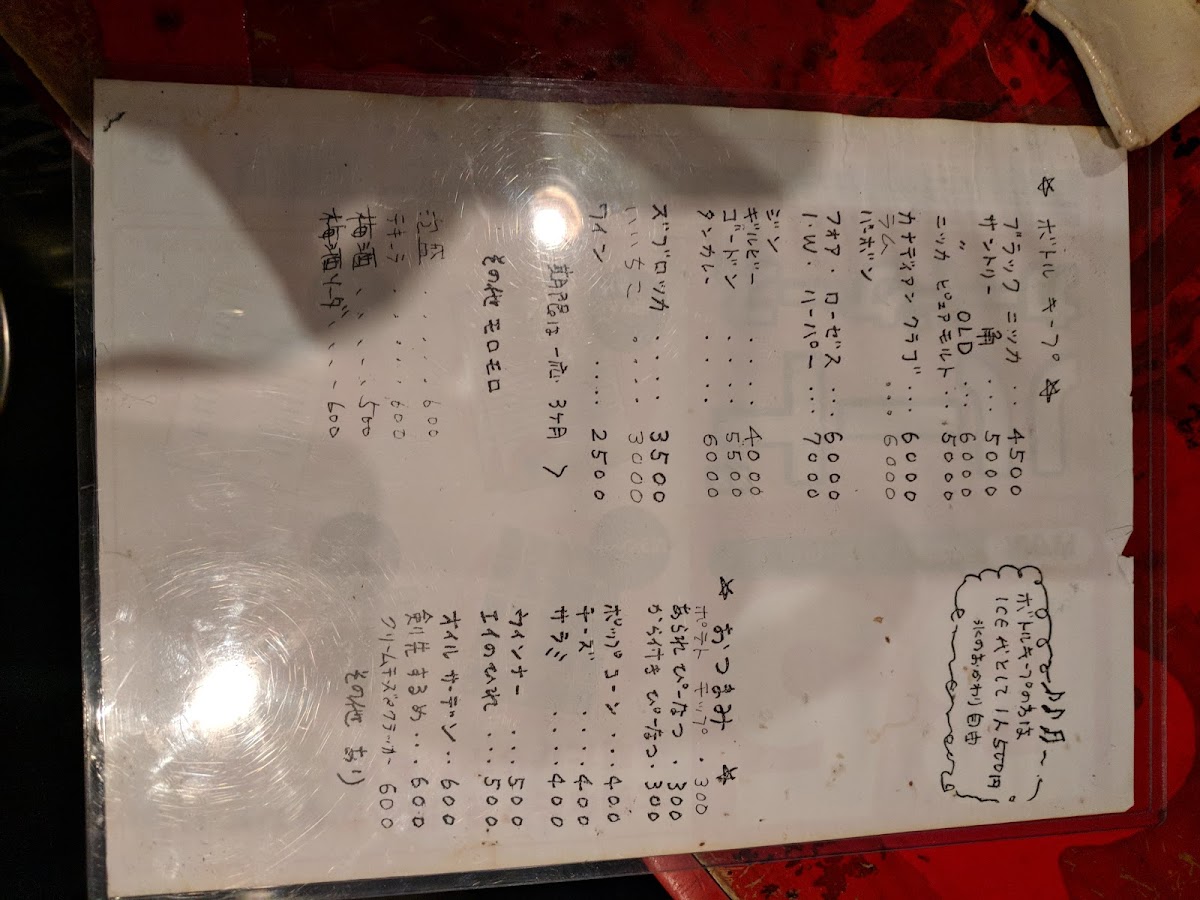 ☆ ボトルキープ ☆
ブラックニッカ ・・ 4500
サントリー 角 ・・・ 5000
〃 OLD ・・・ 6000
ニッカ ピュアモルト ・・ 5000
カナディアンクラブ ・・・ 6000
ラム ・・・ 6000
バーボン
フォア・ローゼス ・・・ 6000
I.W.ハーパー ・・・ 7000
ジン
ギルビー ・・・・ 4000
ゴードン ・・・・ 5500
タンカレー ・・・・ 6000
ズブロッカ ・・・・ 3500
いいちこ ・・・・ 3000
ワイン ・・・・ 2500
期限は一応 3ヶ月 〉
その他 モロモロ
泡盛 ・・・・ 600
テキーラ ・・・・ 600
梅酒 ・・・・ 500
梅酒ソーダ ・・・ 600
ボトルキープの方は
ICE代として1人500円
氷のおかわり自由
☆ おつまみ ☆
ポテトチップ ・ 300
あられぴーなつ ・ 300
から付きぴーなつ ・ 300
ポップコーン ・・・ 400
チーズ ・・・・ 400
サラミ ・・・・ 400
ウインナー ・・・ 500
エイのひれ ・・・ 500
オイルサーデン ・・ 600
剣先するめ ・・・ 600
クリームチーズ&クラッカー 600
その他 あり